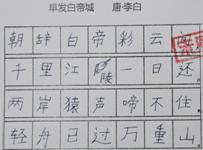 早发白帝城 唐·李白
朝辞白帝彩云
千里江陵一日还
两岸猿声啼不住
轻舟已过万重山